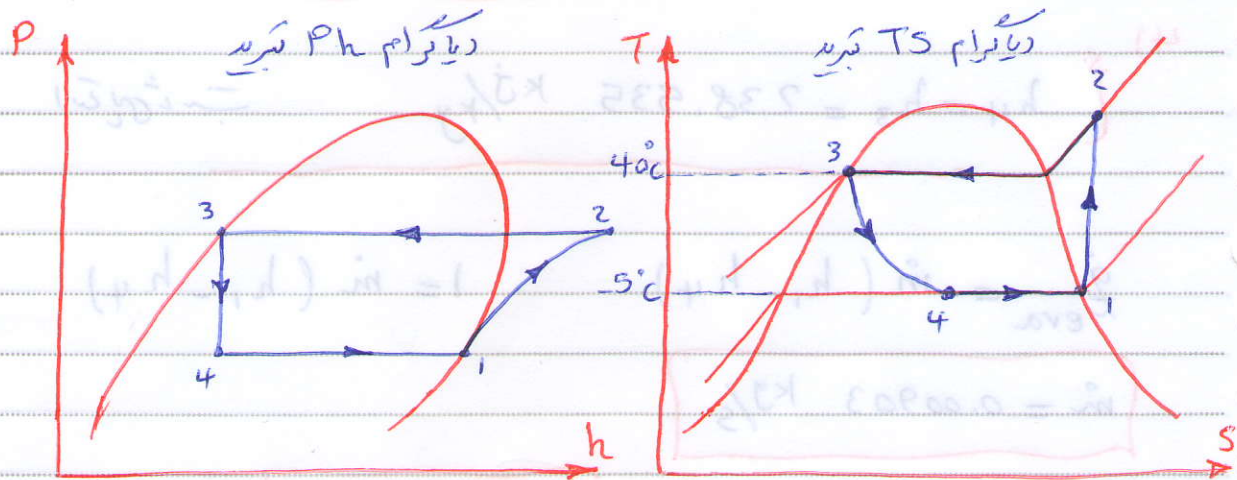 دیاگرام Ph تبرید
P
3
2
4
1
h
دیاگرام TS تبرید
T
2
40°C
3
-5°C
4
1
S